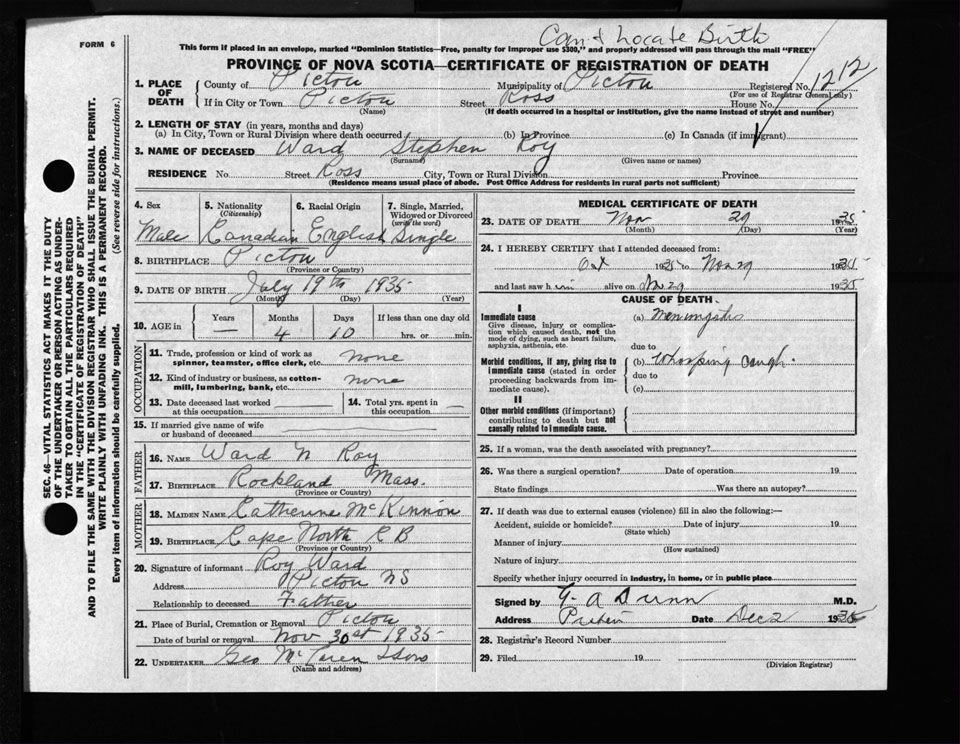 Can't Locate Birth
FORM 6
This form if placed in an envelope, marked "Dominion Statistics—Free, penalty for improper use $300," and properly addressed will pass through the mail "FREE"
PROVINCE OF NOVA SCOTIA—CERTIFICATE OF REGISTRATION OF DEATH
1. PLACE OF DEATH
County of Pictou Municipality of Pictou Registered No. 1212
(For use of Registrar General only)
If in City or Town Pictou Street Ross House No.
(Name) (If death occurred in a hospital or institution, give the name instead of street and number)
2. LENGTH OF STAY (in years, months and days)
(a) In City, Town or Rural Division where death occurred (b) In Province (c) In Canada (if immigrant)
3. NAME OF DECEASED Ward Stephen Roy
(Surname) (Given name or names)
RESIDENCE No. Street Ross City, Town or Rural Division Province
(Residence means usual place of abode. Post Office Address for residents in rural parts not sufficient)
4. Sex 5. Nationality (Citizenship) 6. Racial Origin 7. Single, Married, Widowed or Divorced (write the word)
Male Canadian English Single
8. BIRTHPLACE Pictou
(Province or Country)
9. DATE OF BIRTH July 19th 1935
(Month) (Day) (Year)
10. AGE in Years Months Days If less than one day old
— 4 10 hrs. or min.
OCCUPATION
11. Trade, profession or kind of work as spinner, teamster, office clerk, etc. none
12. Kind of industry or business, as cotton-mill, lumbering, bank, etc. none
13. Date deceased last worked at this occupation
14. Total yrs. spent in this occupation
15. If married give name of wife or husband of deceased
FATHER
16. NAME Ward N Roy
17. BIRTHPLACE Rockland Mass.
(Province or Country)
MOTHER
18. MAIDEN NAME Catherine McKinnon
19. BIRTHPLACE Cape North C B
(Province or Country)
20. Signature of informant Roy Ward
Address Pictou NS
Relationship to deceased Father
21. Place of Burial, Cremation or Removal Pictou
Date of burial or removal Nov 30st 1935
22. UNDERTAKER Geo McLaren & Sons
(Name and address)
MEDICAL CERTIFICATE OF DEATH
23. DATE OF DEATH Nov 29 1935
(Month) (Day) (Year)
24. I HEREBY CERTIFY that I attended deceased from:
Oct 1935 to Nov 29 1935
and last saw him alive on Nov 29 1935
CAUSE OF DEATH
I
Immediate cause (a) Meningitis
Give disease, injury or complication which caused death, not the mode of dying, such as heart failure, asphyxia, asthenia, etc.
due to
Morbid conditions, if any, giving rise to immediate cause (stated in order proceeding backwards from immediate cause).
(b) Whooping Cough
due to
(c)
II
Other morbid conditions (if important) contributing to death but not causally related to immediate cause.
25. If a woman, was the death associated with pregnancy?
26. Was there a surgical operation? Date of operation 19
State findings Was there an autopsy?
27. If death was due to external causes (violence) fill in also the following:—
Accident, suicide or homicide? Date of injury 19
(State which)
Manner of injury
(How sustained)
Nature of injury
Specify whether injury occurred in industry, in home, or in public place
Signed by G. A Dunn M.D.
Address Date Dec 2 1935
28. Registrar's Record Number
29. Filed 19
(Division Registrar)
SEC. 46—VITAL STATISTICS ACT MAKES IT THE DUTY
OF THE UNDERTAKER OR PERSON ACTING AS UNDER-
TAKER TO OBTAIN ALL THE PARTICULARS REQUIRED
IN THE "CERTIFICATE OF REGISTRATION OF DEATH"
AND TO FILE THE SAME WITH THE DIVISION REGISTRAR WHO SHALL ISSUE THE BURIAL PERMIT.
WRITE PLAINLY WITH UNFADING INK. THIS IS A PERMANENT RECORD.
Every item of information should be carefully supplied. (See reverse side for instructions.)